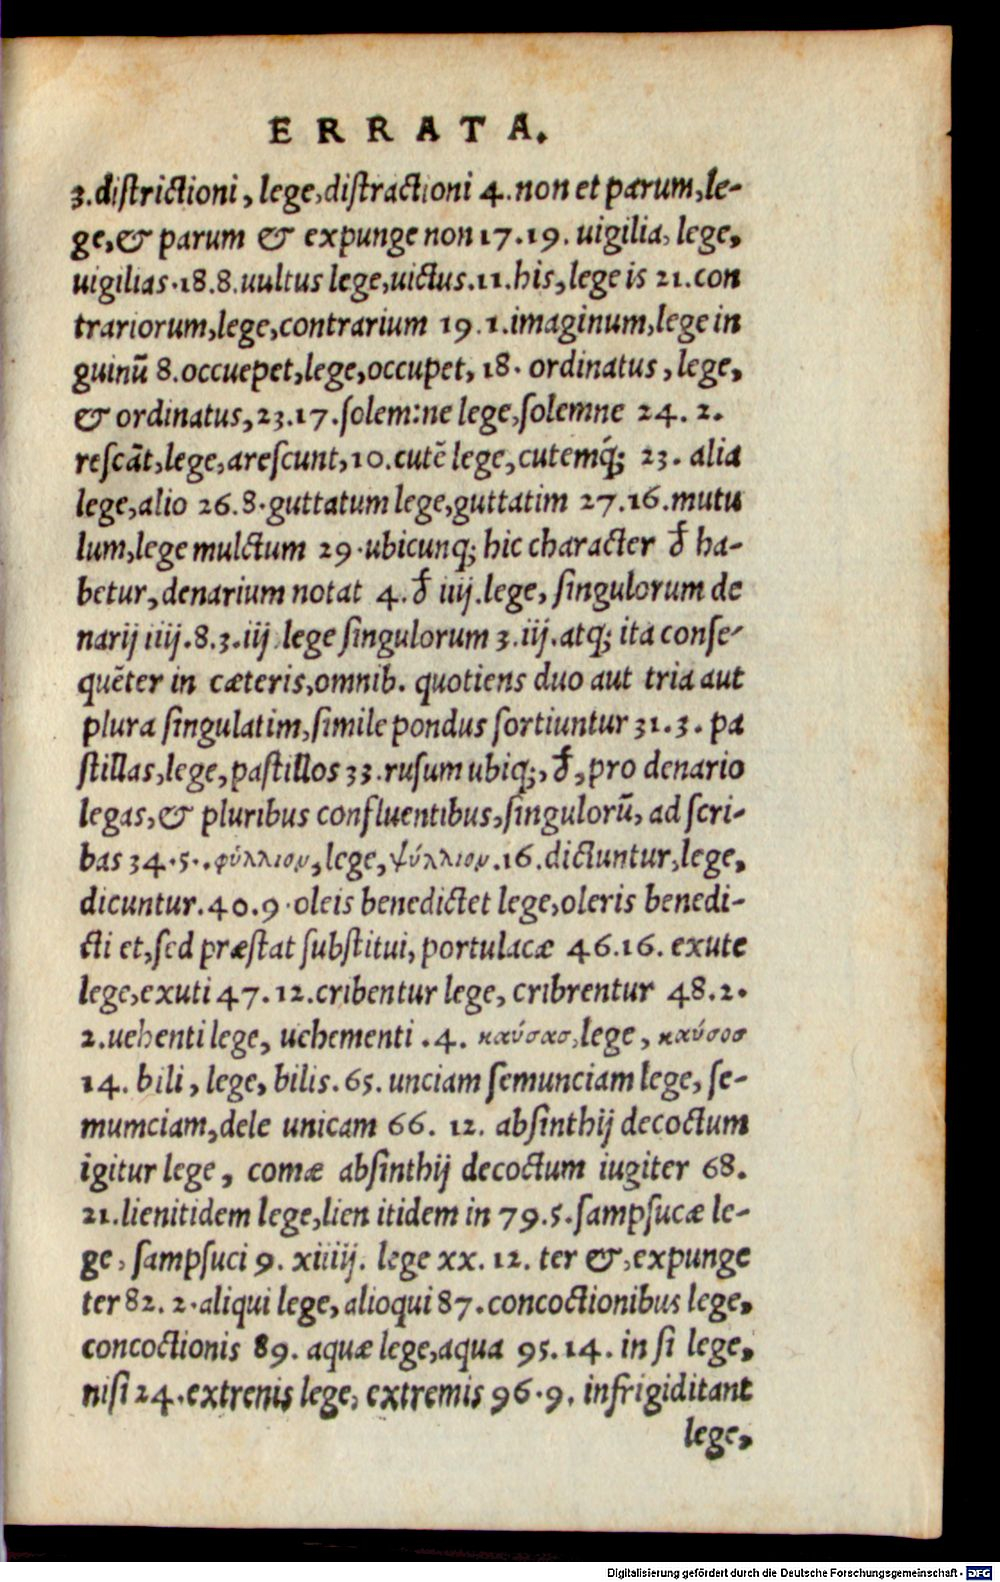 ERRATA.
3.districtioni, lege,distractioni 4.non et parum,le-
ge,& parum & expunge non 17.19. uigilia, lege,
uigilias.18.8.uultus lege,uictus.11.his,lege is 21.con
trariorum,lege,contrarium 19.1.imaginum,lege in
guinū 8.occuepet,lege,occupet, 18. ordinatus, lege,
& ordinatus,23.17.solem:ne lege,solemne 24. 2.
rescāt,lege,arescunt,10.cutē lege,cutemq́; 23. alia
lege,alio 26.8.guttatum lege,guttatim 27.16.mutu
lum,lege mulctum 29.ubicunq; hic character đ ha-
betur,denarium notat 4.đ iiij.lege, singulorum de
narij iiij.8.3.iij lege singulorum 3.iij.atq; ita conse-
quēter in cæteris,omnib. quotiens duo aut tria aut
plura singulatim,simile pondus sortiuntur 31.3. pa
stillas,lege,pastillos 33.rusum ubiq;,đ,pro denario
legas,& pluribus confluentibus,singulorū, ad scri-
bas 34.5..φύλλιον,lege,ψύλλιον.16.dictuntur,lege,
dicuntur.40.9.oleis benedictet lege,oleris benedi-
cti et,sed præstat substitui, portulacæ 46.16. exute
lege,exuti 47.12.cribentur lege, cribrentur 48.2.
2.uehenti lege, uehementi .4. καύσας,lege, καύσος
14. bili, lege, bilis.65. unciam semunciam lege, se-
mumciam,dele unicam 66. 12. absinthij decoctum
igitur lege, comæ absinthij decoctum iugiter 68.
21.lienitidem lege,lien itidem in 79.5.sampsucæ le-
ge, sampsuci 9. xiiiij. lege xx. 12. ter &,expunge
ter 82. 2.aliqui lege, alioqui 87.concoctionibus lege,
concoctionis 89. aquæ lege,aqua 95.14. in si lege,
nisi 24.extrenis lege, extremis 96.9. infrigiditant
lege,
Digitalisierung gefördert durch die Deutsche Forschungsgemeinschaft - DFG